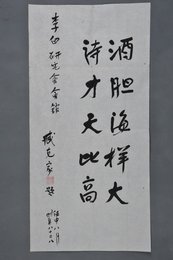 酒胆海样大
诗才天比高
李白研究会会馆
臧克家
题